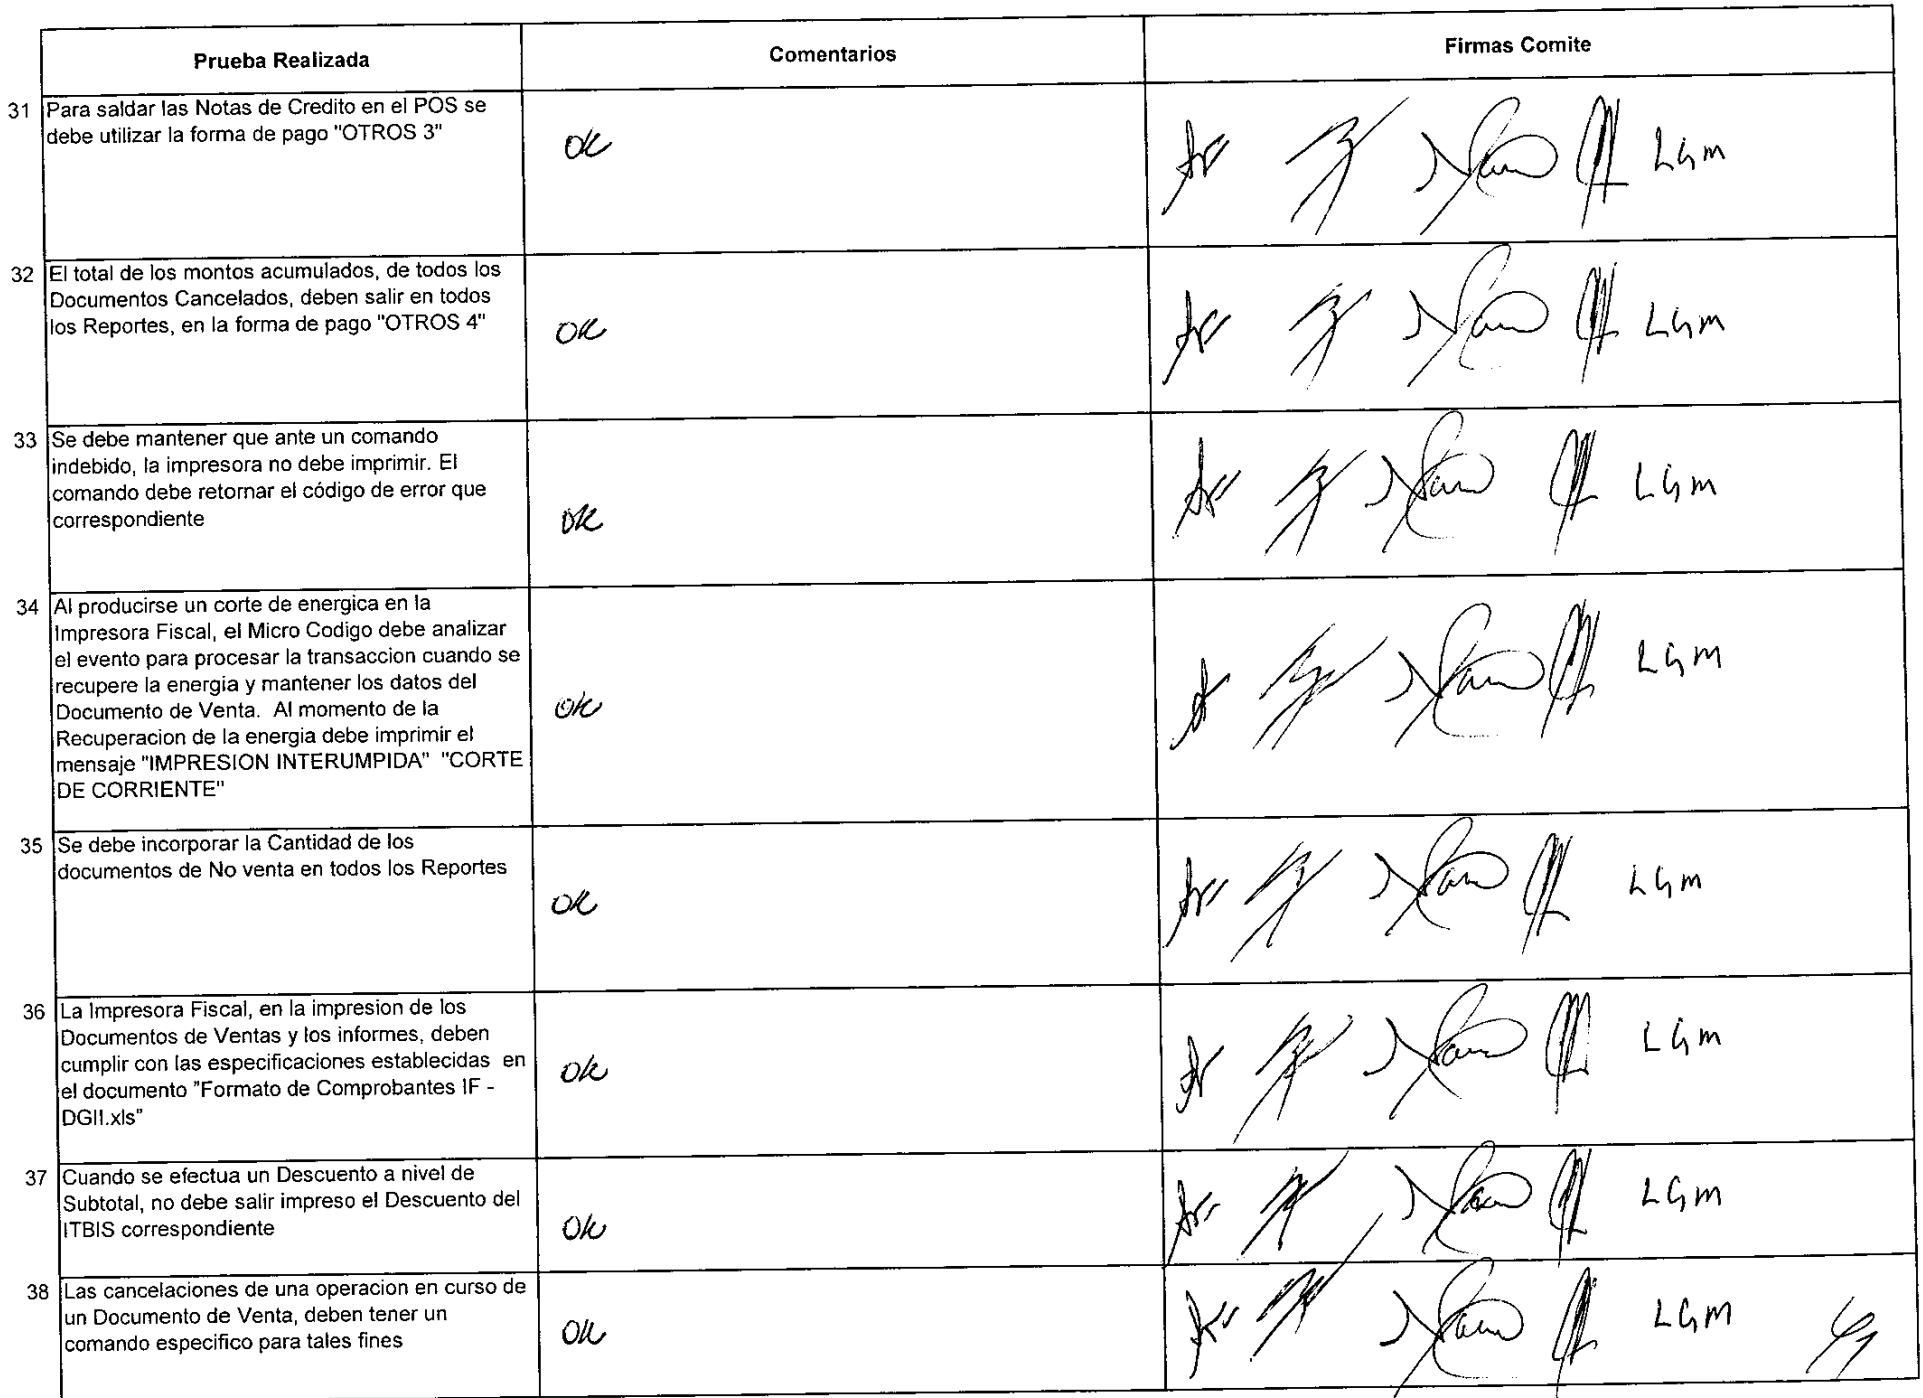 Prueba Realizada Comentarios Firmas Comite
31 Para saldar las Notas de Credito en el POS se
debe utilizar la forma de pago "OTROS 3"
OK
LGM
32 El total de los montos acumulados, de todos los
Documentos Cancelados, deben salir en todos
los Reportes, en la forma de pago "OTROS 4"
OK
LGM
33 Se debe mantener que ante un comando
indebido, la impresora no debe imprimir. El
comando debe retornar el código de error que
correspondiente
OK
LGM
34 Al producirse un corte de energica en la
Impresora Fiscal, el Micro Codigo debe analizar
el evento para procesar la transaccion cuando se
recupere la energia y mantener los datos del
Documento de Venta. Al momento de la
Recuperacion de la energia debe imprimir el
mensaje "IMPRESION INTERUMPIDA" "CORTE
DE CORRIENTE"
OK
LGM
35 Se debe incorporar la Cantidad de los
documentos de No venta en todos los Reportes
OK
LGM
36 La Impresora Fiscal, en la impresion de los
Documentos de Ventas y los informes, deben
cumplir con las especificaciones establecidas en
el documento "Formato de Comprobantes IF -
DGII.xls"
OK
LGM
37 Cuando se efectua un Descuento a nivel de
Subtotal, no debe salir impreso el Descuento del
ITBIS correspondiente
OK
LGM
38 Las cancelaciones de una operacion en curso de
un Documento de Venta, deben tener un
comando especifico para tales fines
OK
LGM